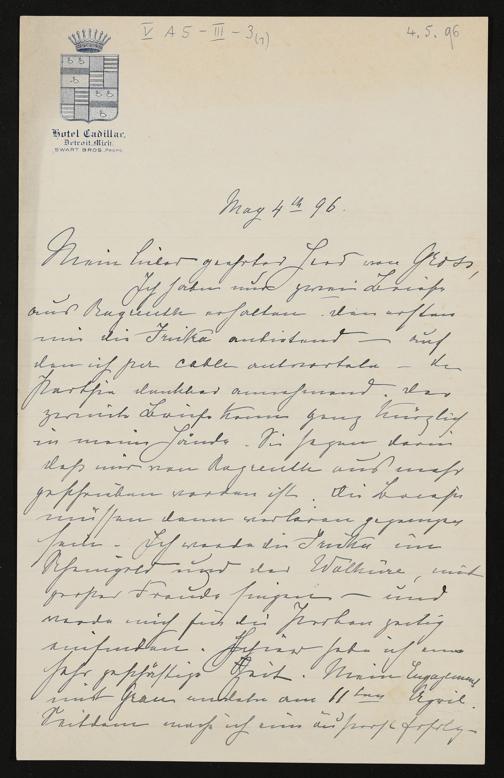 V A 5 - III - 3(1)
4. 5. 96
Hotel Cadillac,
Detroit, Mich.
SWART BROS. PROPS.
May 4th 96.
Mein lieber geehrter Herr von Gross,
Ich habe nun zwei Briefe
aus Bayreuth erhalten. Den ersten
mir die Fricka anbietend – auf
den ich per cable antwortete – die
Parthie dankbar annehmend. Der
zweite Brief kam ganz kürzlich
in meine Hände. Sie sagen darin
daß mir von Bayreuth aus mehr
geschrieben worden ist. Die Briefe
müssen dann verloren gegangen
sein. Ich werde die Fricka im
Rheingold und der Walküre, mit
großer Freude singen – und
werde mich für die Proben zeitig
einfinden. Hier habe ich eine
sehr geschäftige Zeit. Mein Engagement
mit Grau endete am 11ten April.
Seitdem mache ich eine äusserst erfolg-